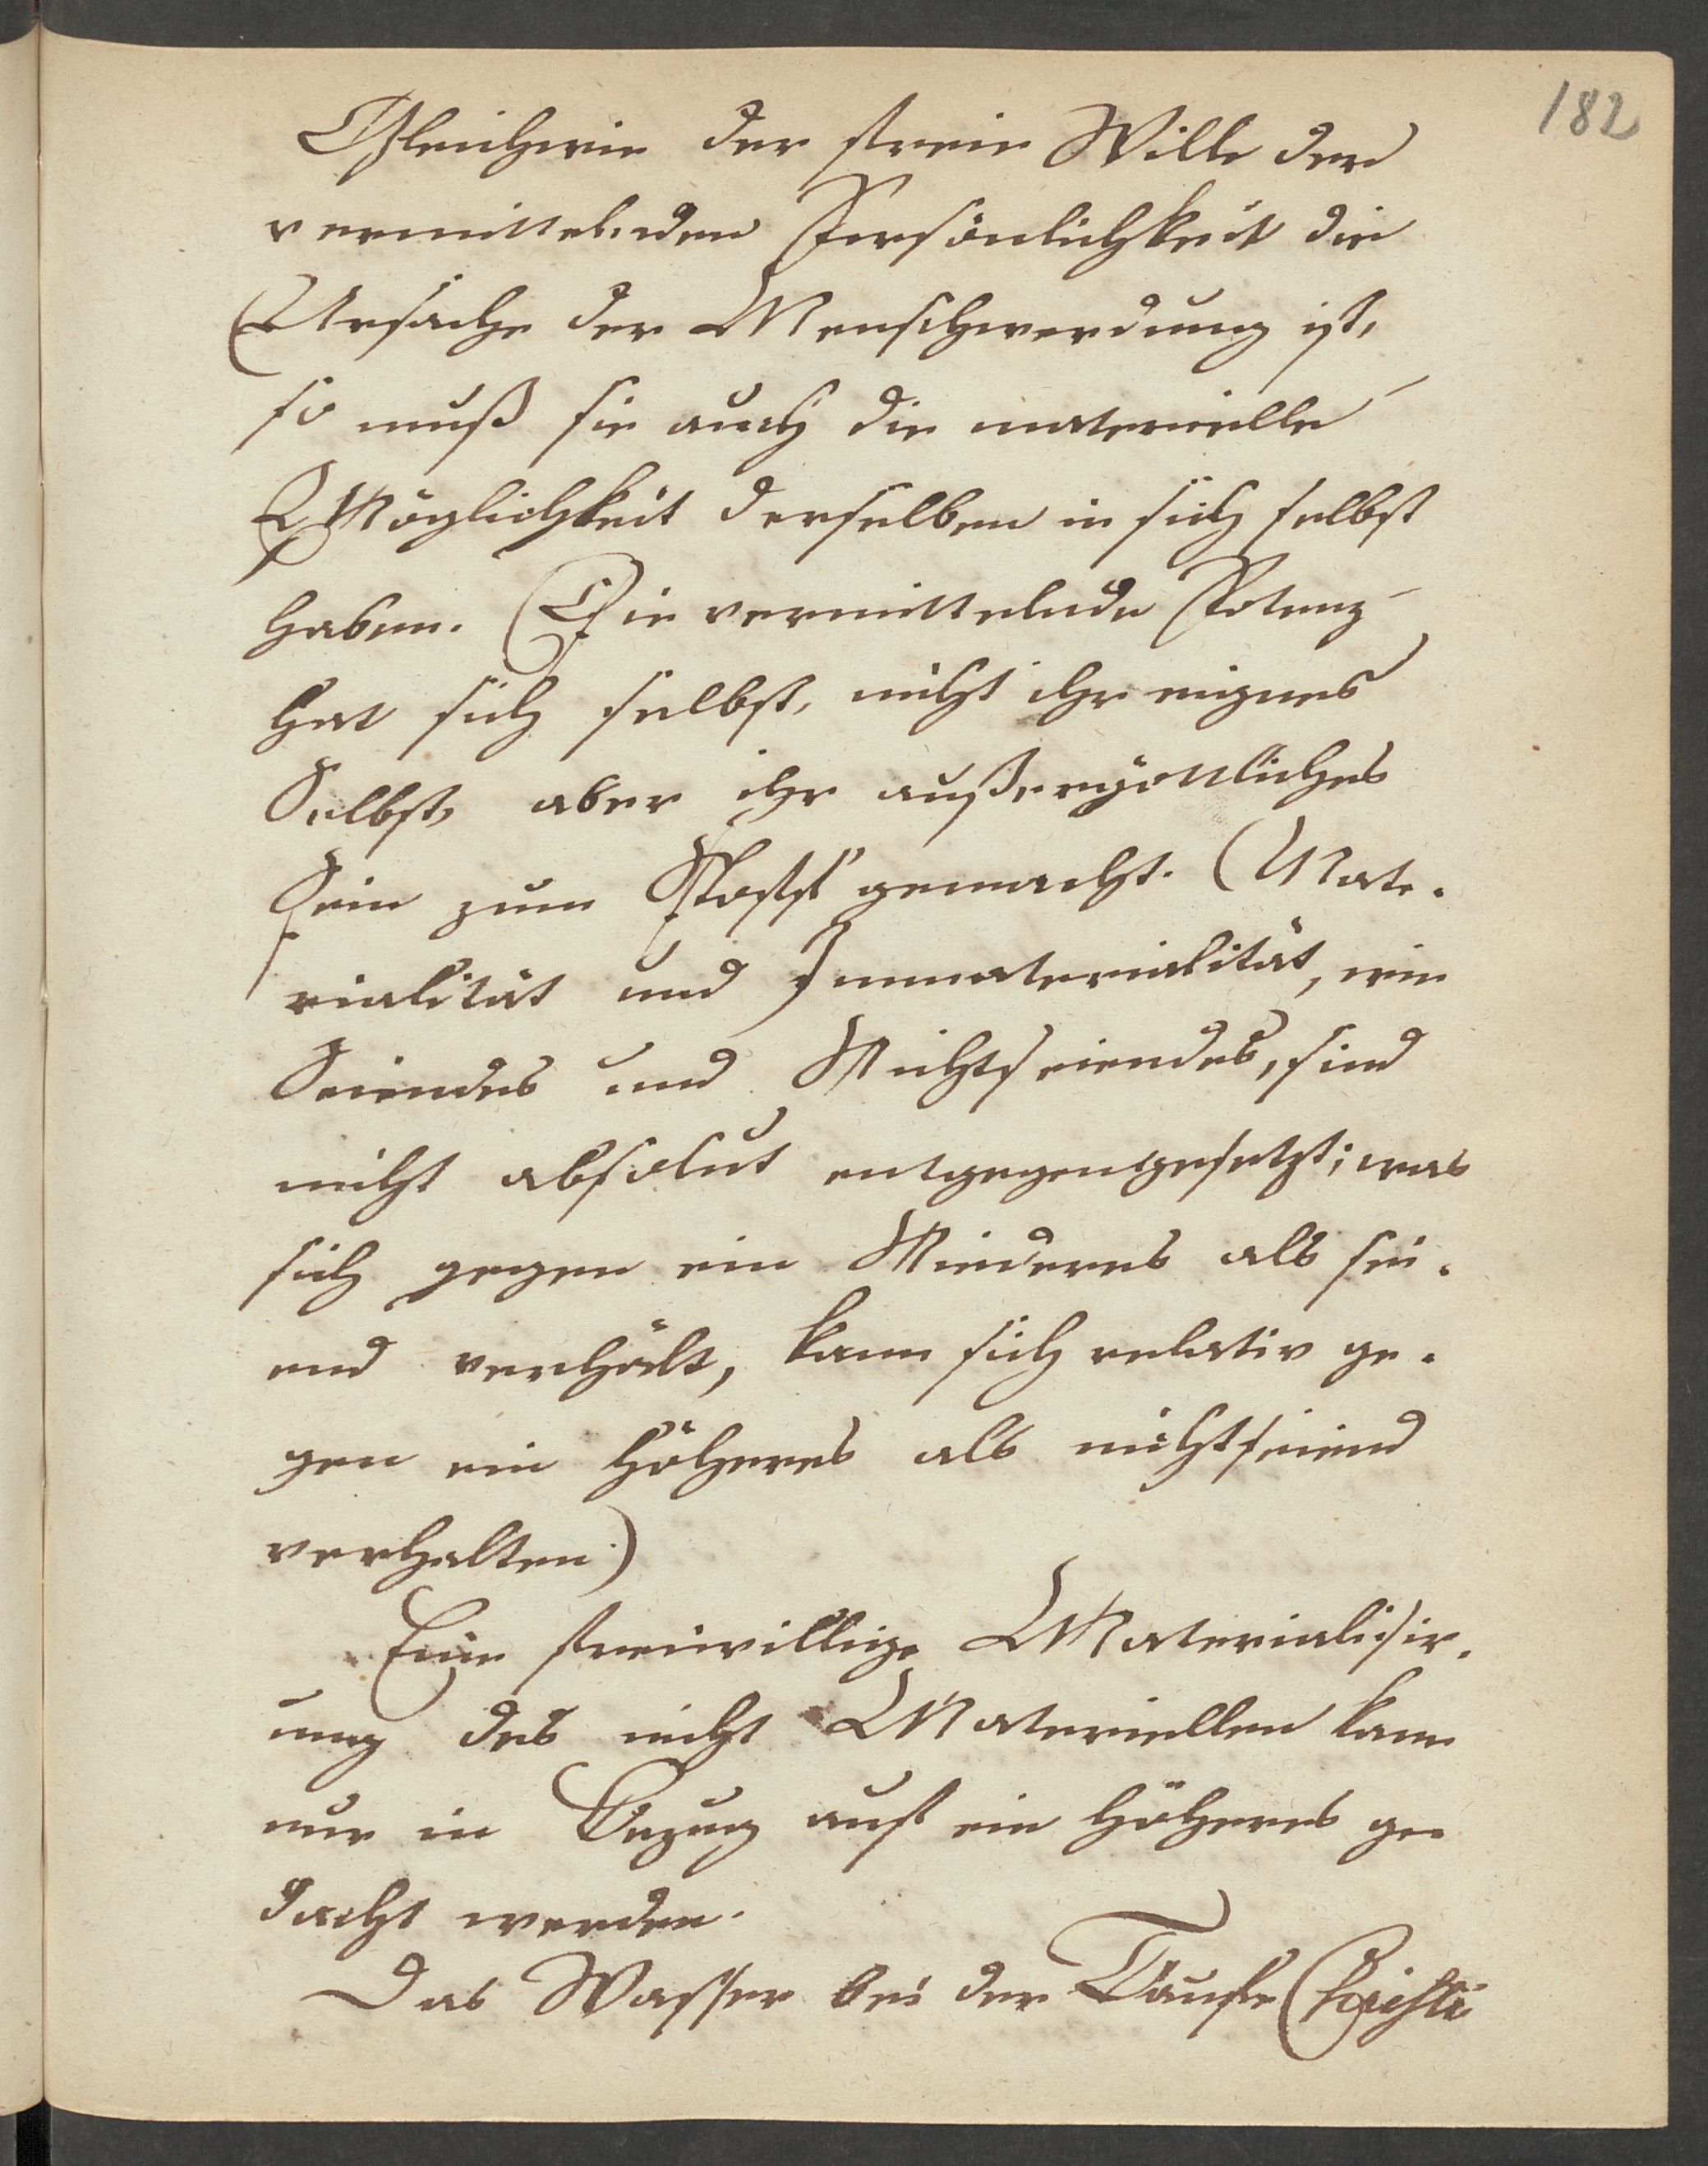 182
Gleichwie der freie Wille der
vermittelnden Persönlichkeit die
Ursache der Menschwerdung ist,
so muß sie auch die materielle
Möglichkeit derselben in sich selbst
haben. Die vermittelnde Potenz
hat sich selbst, nicht ihr eignes
Selbst, aber ihr außergöttliches
Sein zum Stoff gemacht. (Mate-
rialität und Immaterialität, wie
Seiendes und Nichtseiendes, sind
nicht absolut entgegengesetzt; was
sich gegen ein Minderes als sei-
end verhält, kann sich relativ ge-
gen ein Höheres als nichtseiend
verhalten.)
Eine freiwillige Materialisir-
ung des nicht Materiellen kann
nur in Bezug auf ein Höheres ge-
dacht werden.
Das Wasser bei der Taufe Christi